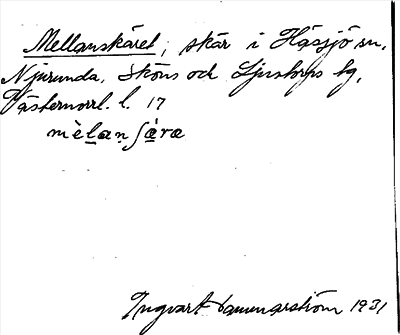 Mellanskäret, skär i Hässjö sn,
Njurunda, Sköns och Ljustorps tg,
Västernorrl. l. 17
mèlanʃära
Ingvart Hammarström 1931